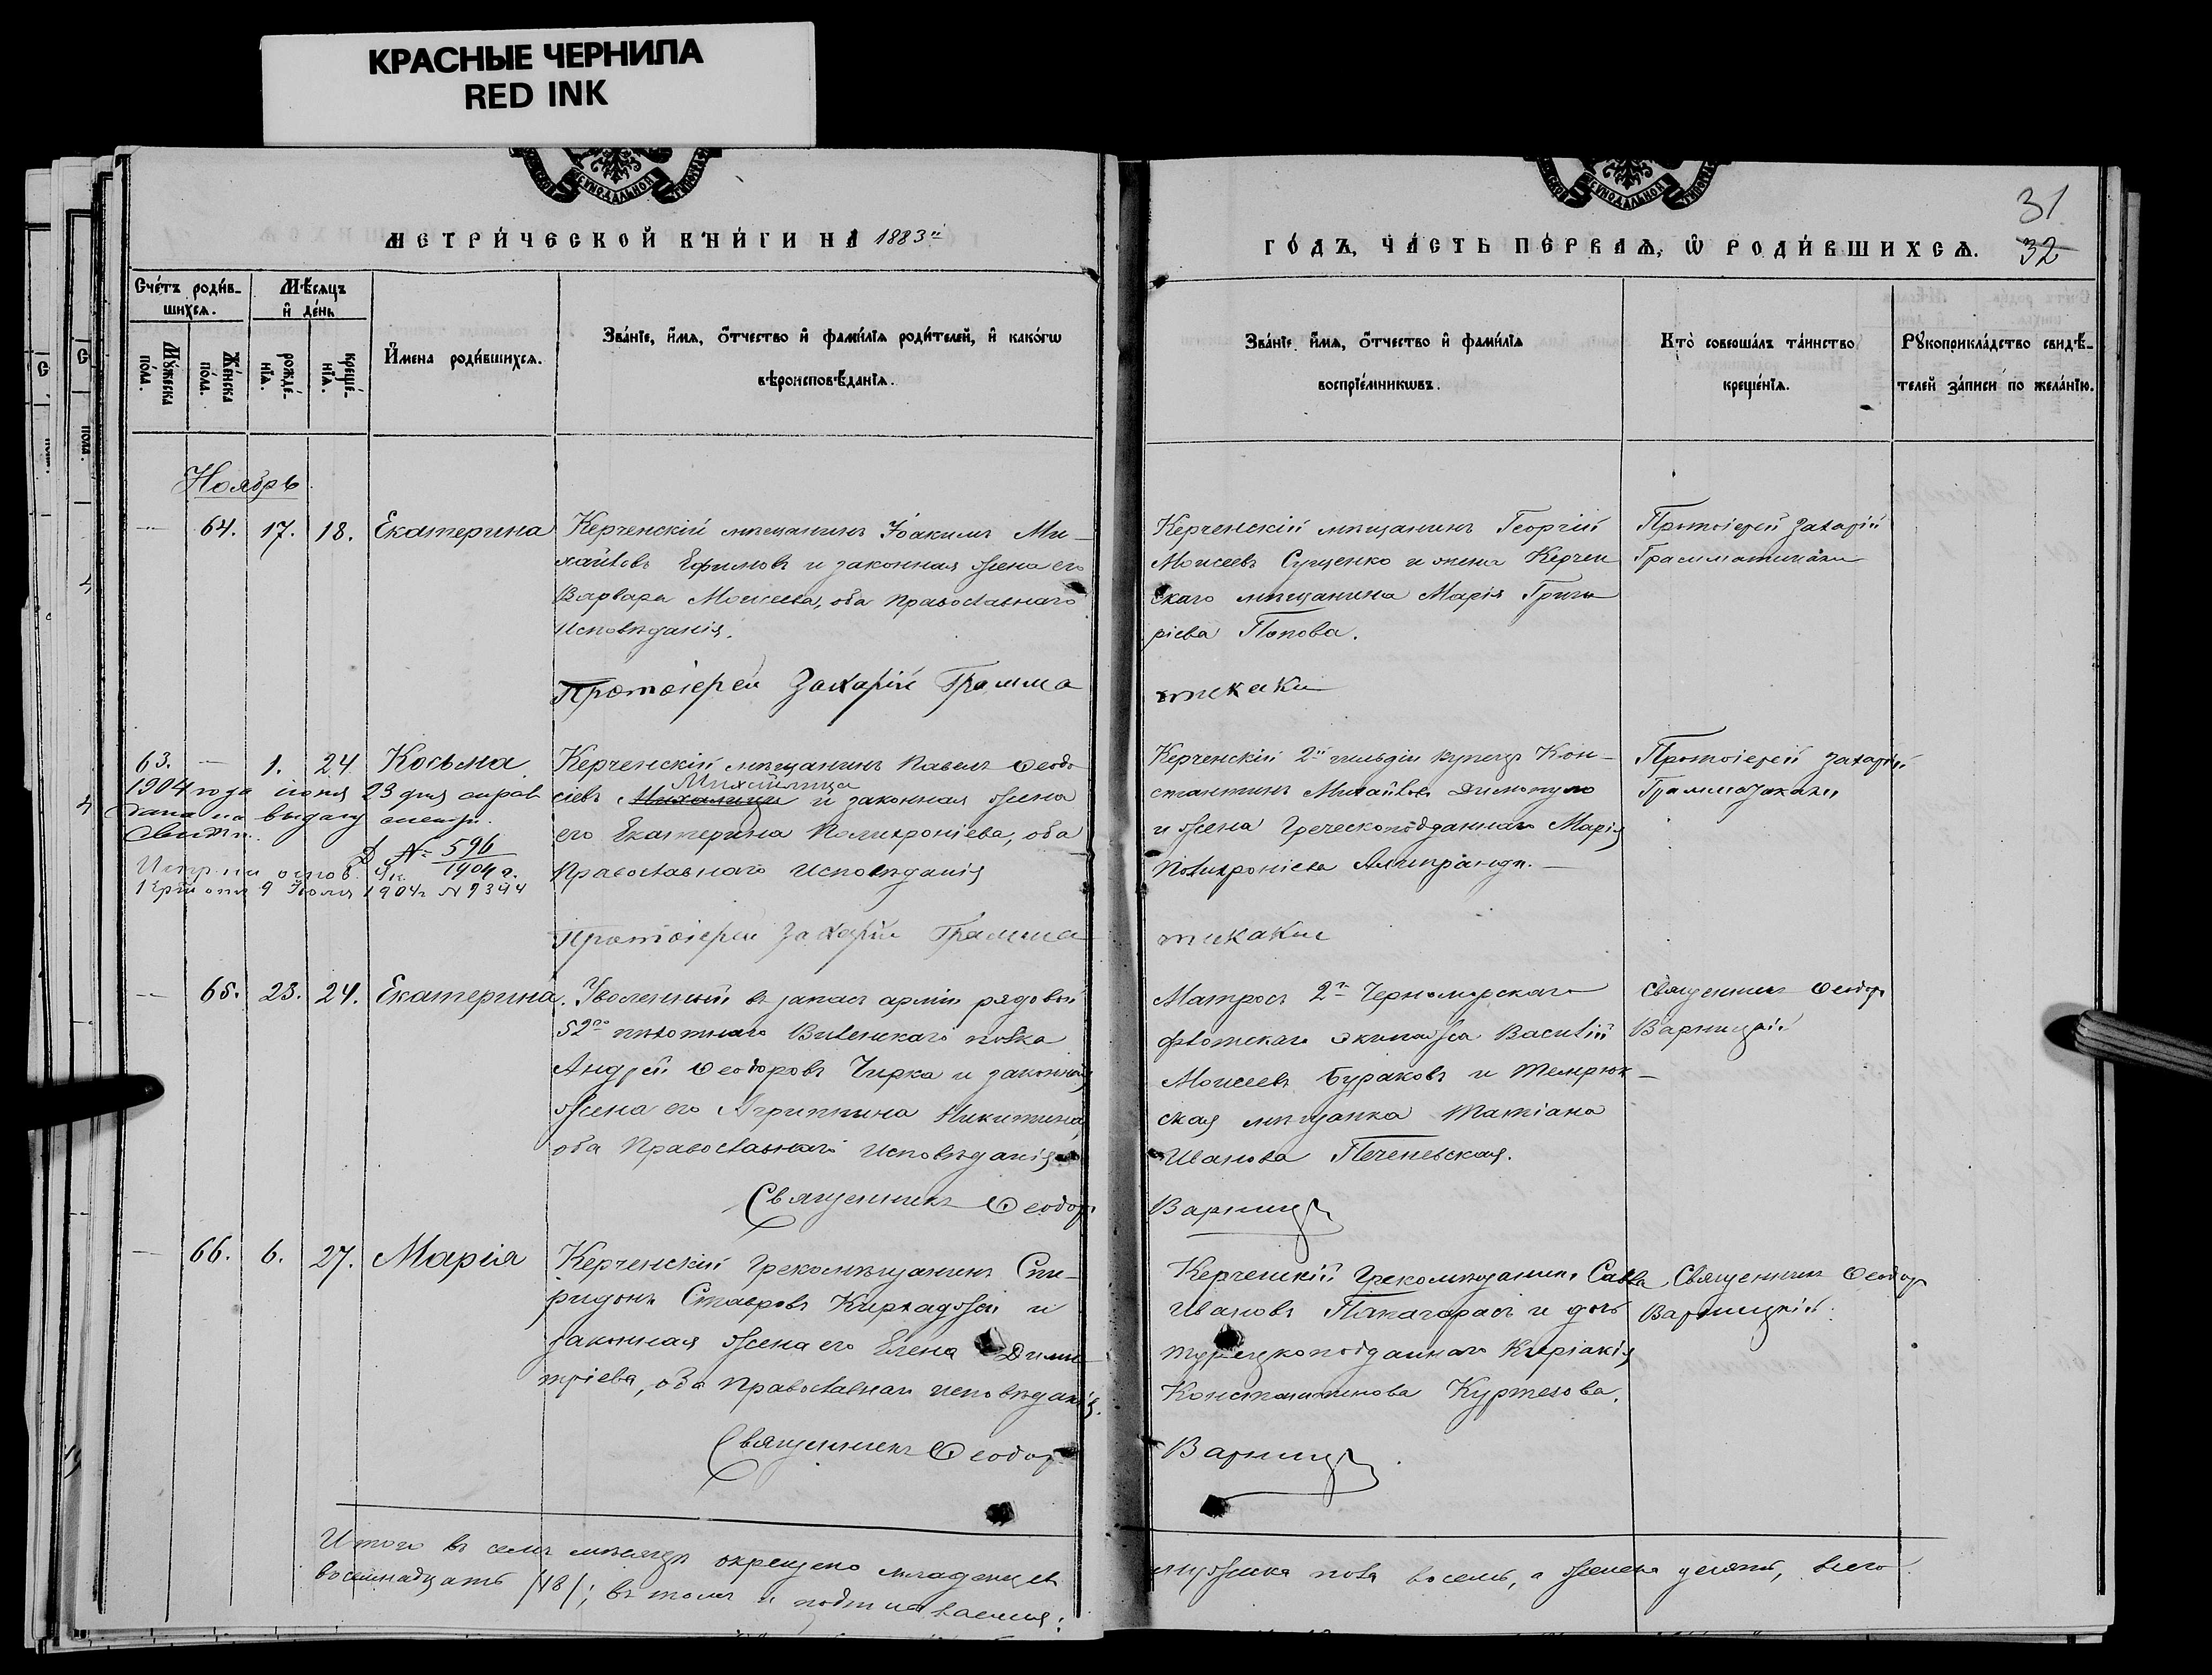 КРАСНЫЕ ЧЕРНИЛА
RED INK
МЕТРИЧЕСКОЙ КНИГИ НА 1883й
ГОДЪ, ЧАСТЬ ПЕРВАЯ, Ѡ РОДИВШИХСЯ.
31
32
Счетъ родив-
шихся.
Мѣсяцъ
и день
Мужеска пола.
Женска пола.
рожденія.
крещенія.
Имена родившихся.
Званіе, имя, отчество и фамилія родителей, и какогѡ
вѣроисповѣданія.
Званіе, имя, отчество и фамилія
воспріемникѡвъ.
Кто совершалъ таинство
крещенія.
Рукоприкладство свидѣ-
телей записи по желанію.
Ноябрь
— 64. 17. 18. Екатерина
Керченскій мѣщанинъ Іоакимъ Ми-
хайловъ Ефимовъ и законная жена его
Варвара Моисеева, оба Православнаго
Исповѣданія.
Протоіерей Захарій Грамма
Керченскій мѣщанинъ Георгій
Моисеевъ Сущенко и жена Керчен
скаго мѣщанина Марія Григо
ріева Попова.
тикаки
Протоіерей Захарій
Грамматикаки
63. — 1. 24 Косьма
1904 года іюня 23 дня справ
дана на выдачу
№ 596
1904 г.
9 Іюля 1904г № 9344
Керченскій мѣщанинъ Павелъ Ѳеодо
Михайлица
сіевъ Михалица и законная жена
его Екатерина Полихроніева, оба
Православнаго Исповѣданія
Протоіерей Захарій Грамма
Керченскій 2й гильдіи купецъ Кон-
стантинъ Михайловъ Димопуло
и жена Греческоподданнаго Марія
Полихроніева
тикаки
Протоіерей Захарій
Грамматикаки
— 65. 23. 24. Екатерина.
Уволенный въ запасъ арміи рядовой
52го пѣхотнаго Виленскаго полка
Андрей Ѳеодоровъ Чирка и законная
жена его Агриппина Никитина,
оба Православнаго Исповѣданія
Священникъ Ѳеодоръ
Матросъ 2го Черноморскаго
флотскаго экипажа Василій
Моисеевъ Бураковъ и Темрюк-
ская мѣщанка Татіана
Иванова Печеневская.
Варницк
Священникъ Ѳеодоръ
Варницкій
— 66. 6. 27. Марія
Керченскій Грекомѣщанинъ Спи-
ридонъ Ставровъ Кирхаджи и
законная жена его Елена Дими
тріева, оба Православнаго исповѣданія.
Священникъ Ѳеодоръ
Керченскій Грекомѣщанинъ Савва
Ивановъ и дочь
турецкоподданнаго Киріакія
Константинова Куртезова.
Варницк
Священникъ Ѳеодоръ
Варницкій.
Итого въ семъ мѣсяцѣ окрещено младенцевъ
мужеска пола восемь, а женска десять, всего
восемнадцать /18/; въ томъ и